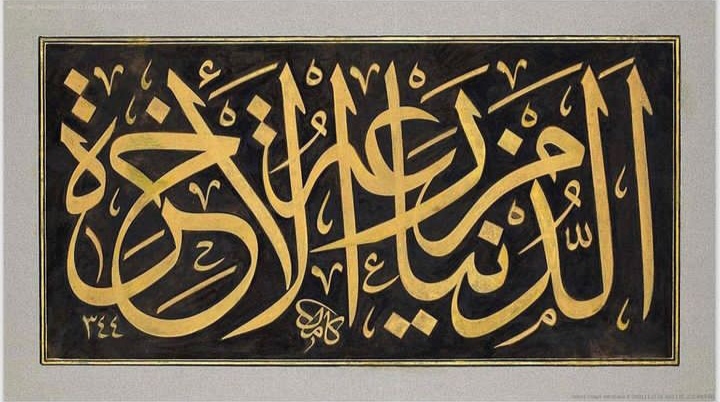 الدنيا مزرعة الأخرة
كامل
١٣٤٤